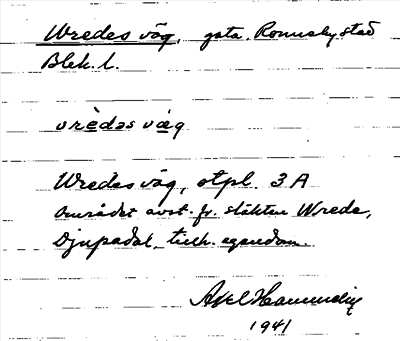 Wredes väg, gata. Ronneby stad
Blek. l.
vrèdəs väg
Wredes väg, stpl. 3 A
Området avst. fr. släkten Wrede,
Djupadal, tillh. egendom.
Axel
1941